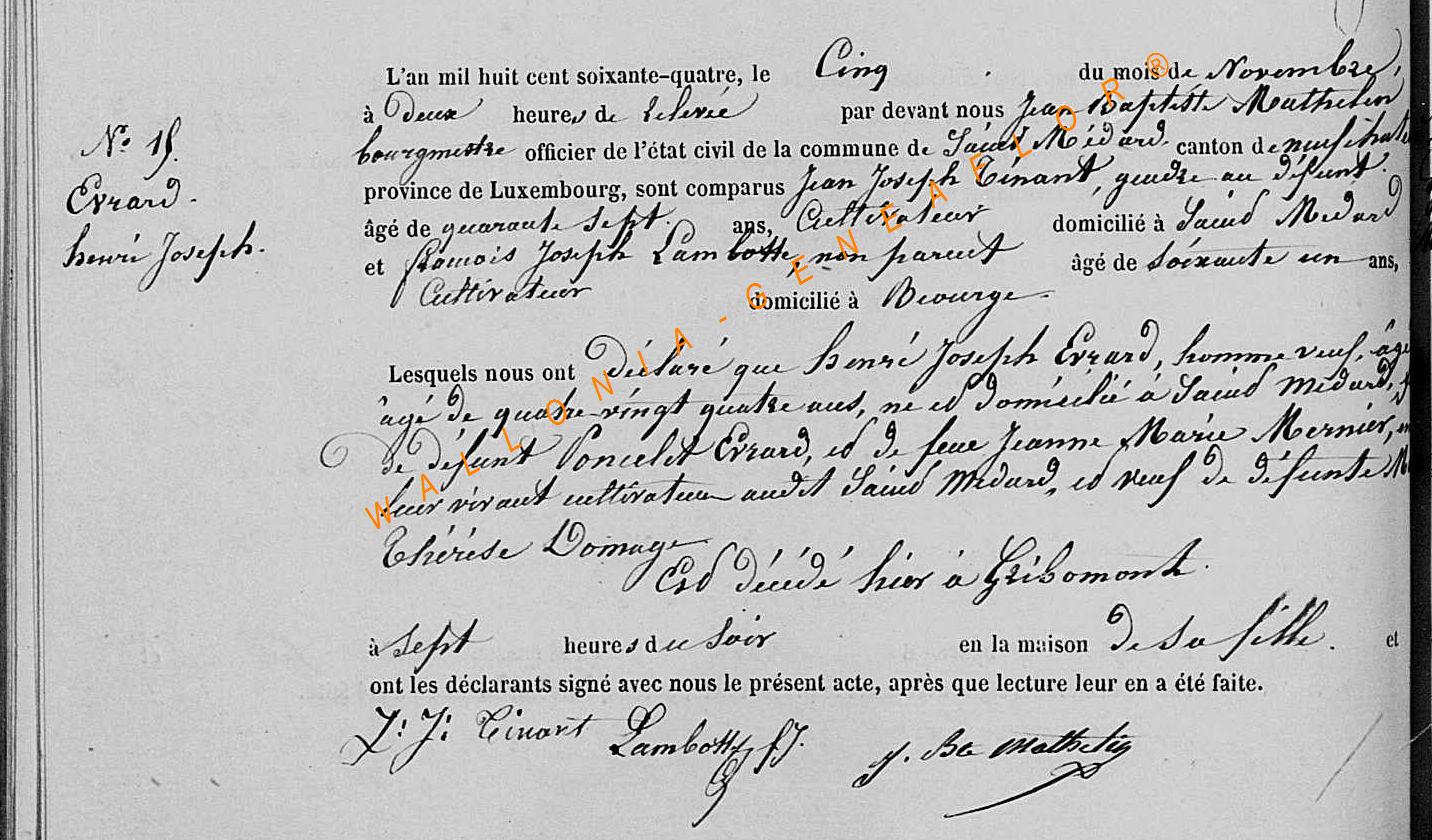 L'an mil huit cent soixante-quatre, le Cinq du mois de Novembre,
à Deux heures de relevée par devant nous Jean Baptiste Mathelin
bourgmestre officier de l'état civil de la commune de Saint Médard canton de neufchateau
province de Luxembourg, sont comparus Jean Joseph Tinant, gendre au défunt
âgé de quarante sept ans, Cultivateur domicilié à Saint Médard
et francois Joseph Lambotte, non parent âgé de soixante un ans,
Cultivateur domicilié à
Lesquels nous ont Déclaré que henri Joseph Evrard, homme veuf, âgé
âgé de quatre vingt quatre ans, né et domicilié à Saint Médard,
de défunt Poncelet Evrard, et de feue Jeanne Marie Mernier,
leur vivant cultivateur audit Saint Médard, et veuf de défunte
thérèse Domage
Est décédé hier à Gribomont
à sept heures du soir en la maison de sa fille. et
ont les déclarants signé avec nous le présent acte, après que lecture leur en a été faite.
J: J: Tinant Lambotte fJ. J. Bte Mathelin
No 15.
Evrard.
henri Joseph.
WALLONIA-GENEAFLOR®